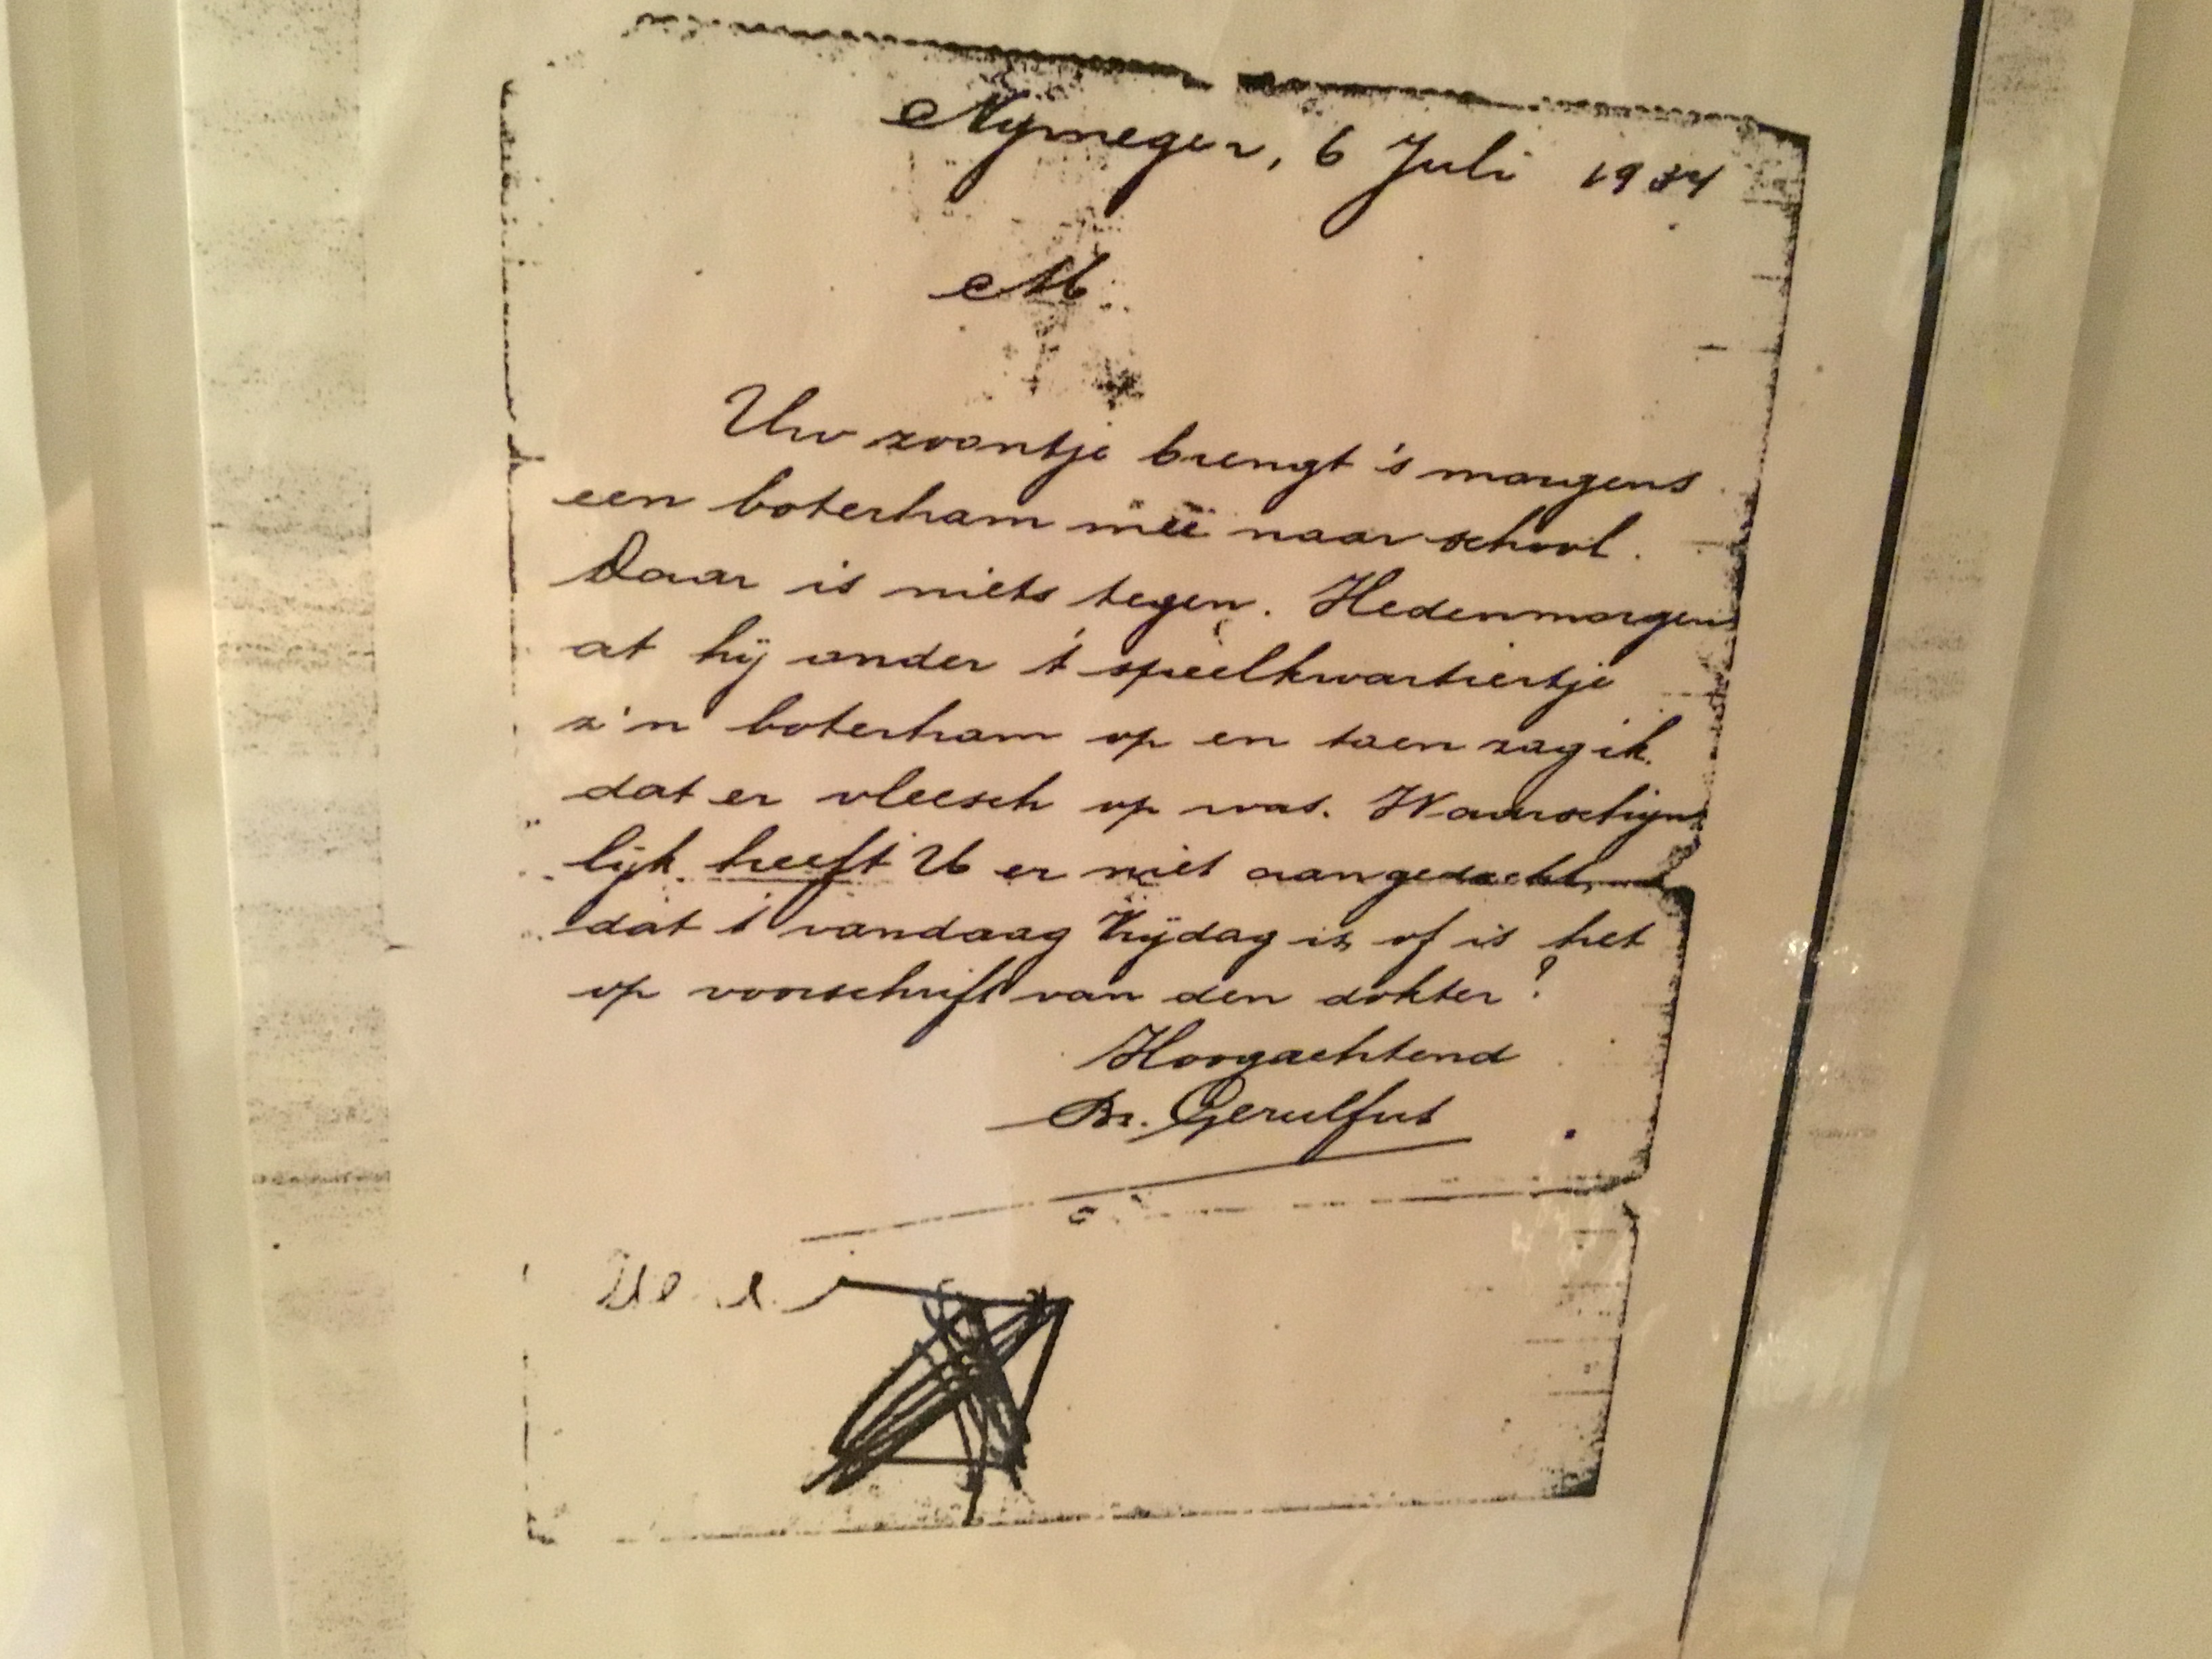 Nijmegen, 6 Juli 1934
M
Uw zoontje brengt 's morgens
een boterham meê naar school.
Daar is niets tegen. Hedenmorgen
at hij onder 't speelkwartiertje
z'n boterham op en toen zag ik
dat er vleesch op was. Waarschijn
lijk heeft U er niet aangedacht,
dat 't vandaag Vrijdag is, of is het
op voorschrift van den dokter?
Hoogachtend
Br. Gerulfus